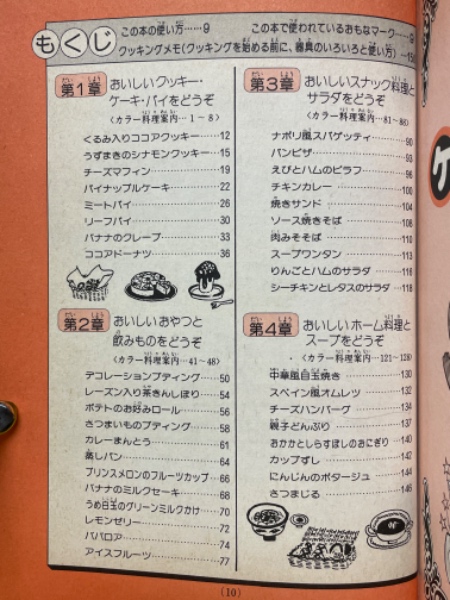 もくじ
この本の使い方……9
この本で使われているおもなマーク……9
クッキングメモ(クッキングを始める前に、器具のいろいろと使い方)…150
第1章 おいしいクッキー・
ケーキ・パイをどうぞ
〈カラー料理案内…1〜8〉
くるみ入りココアクッキー……12
うずまきのシナモンクッキー……15
チーズマフィン……19
パイナップルケーキ……22
ミートパイ……26
リーフパイ……30
バナナのクレープ……33
ココアドーナツ……36
第2章 おいしいおやつと
飲みものをどうぞ
〈カラー料理案内…41〜48〉
デコレーションプディング……50
レーズン入り茶きんしぼり……54
ポテトのお好みロール……56
さつまいものプディング……58
カレーまんとう……61
蒸しパン……64
プリンスメロンのフルーツカップ……66
バナナのミルクセーキ……68
うめ白玉のグリーンミルクかけ……70
レモンゼリー……72
ババロア……74
アイスフルーツ……77
第3章 おいしいスナック料理と
サラダをどうぞ
〈カラー料理案内…81〜88〉
ナポリ風スパゲッティ……90
パンピザ……93
えびとハムのピラフ……96
チキンカレー……100
焼きサンド……104
ソース焼きそば……108
肉みそそば……110
スープワンタン……113
りんごとハムのサラダ……116
シーチキンとレタスのサラダ……118
第4章 おいしいホーム料理と
スープをどうぞ
〈カラー料理案内…121〜128〉
中華風目玉焼き……130
スペイン風オムレツ……132
チーズハンバーグ……134
親子どんぶり……137
おかかとしらすぼしのおにぎり……140
カップずし……142
にんじんのポタージュ……144
さつまじる……146
(10)
ケ